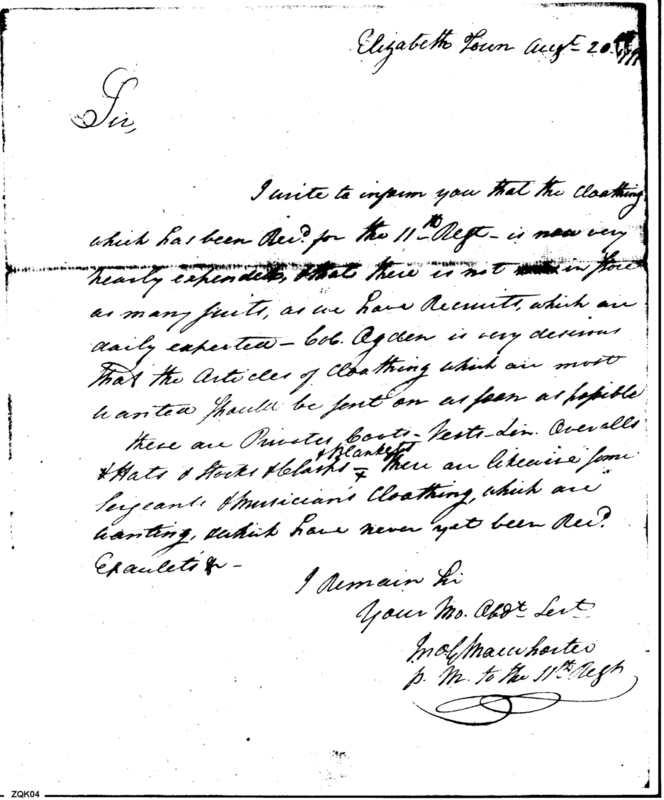 Elizabeth Town Augt 20th
Sir,
I write to inform you that the Cloathing
which has been Recd. for the 11th Regt - is now very
nearly expended, & that there is not in store
as many suits, as we have Recruits, which are
daily expected - Col. Ogden is very desirous
that the Articles of Cloathing which are most
wanted should be sent on as soon as possible
these are Privates Coats - Vests - Lin. Overalls
& Blankets
& Hats & Stocks & Clasps - there are likewise some
Sergeants & Musicians Cloathing, which are
wanting, & which have never yet been Recd.
Epaulets & -
I Remain Sir
Your Mo. Obdt Sert
Macwhorter
p. M. to the 11th Regt
ZQK04